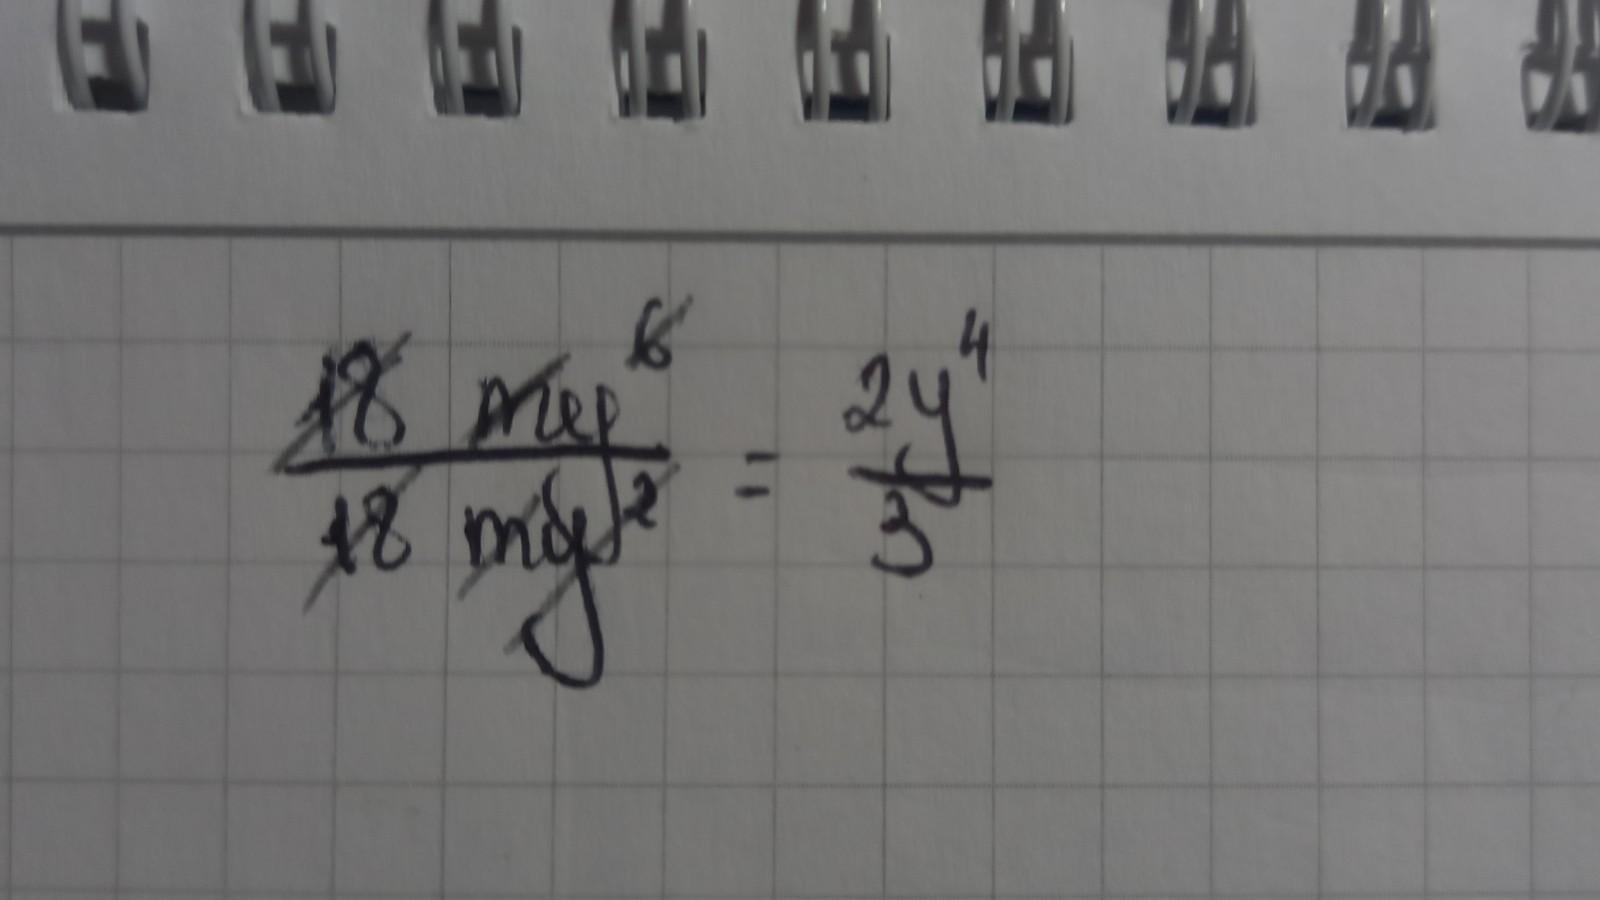 18 my⁶
18 my² = 2y⁴
3